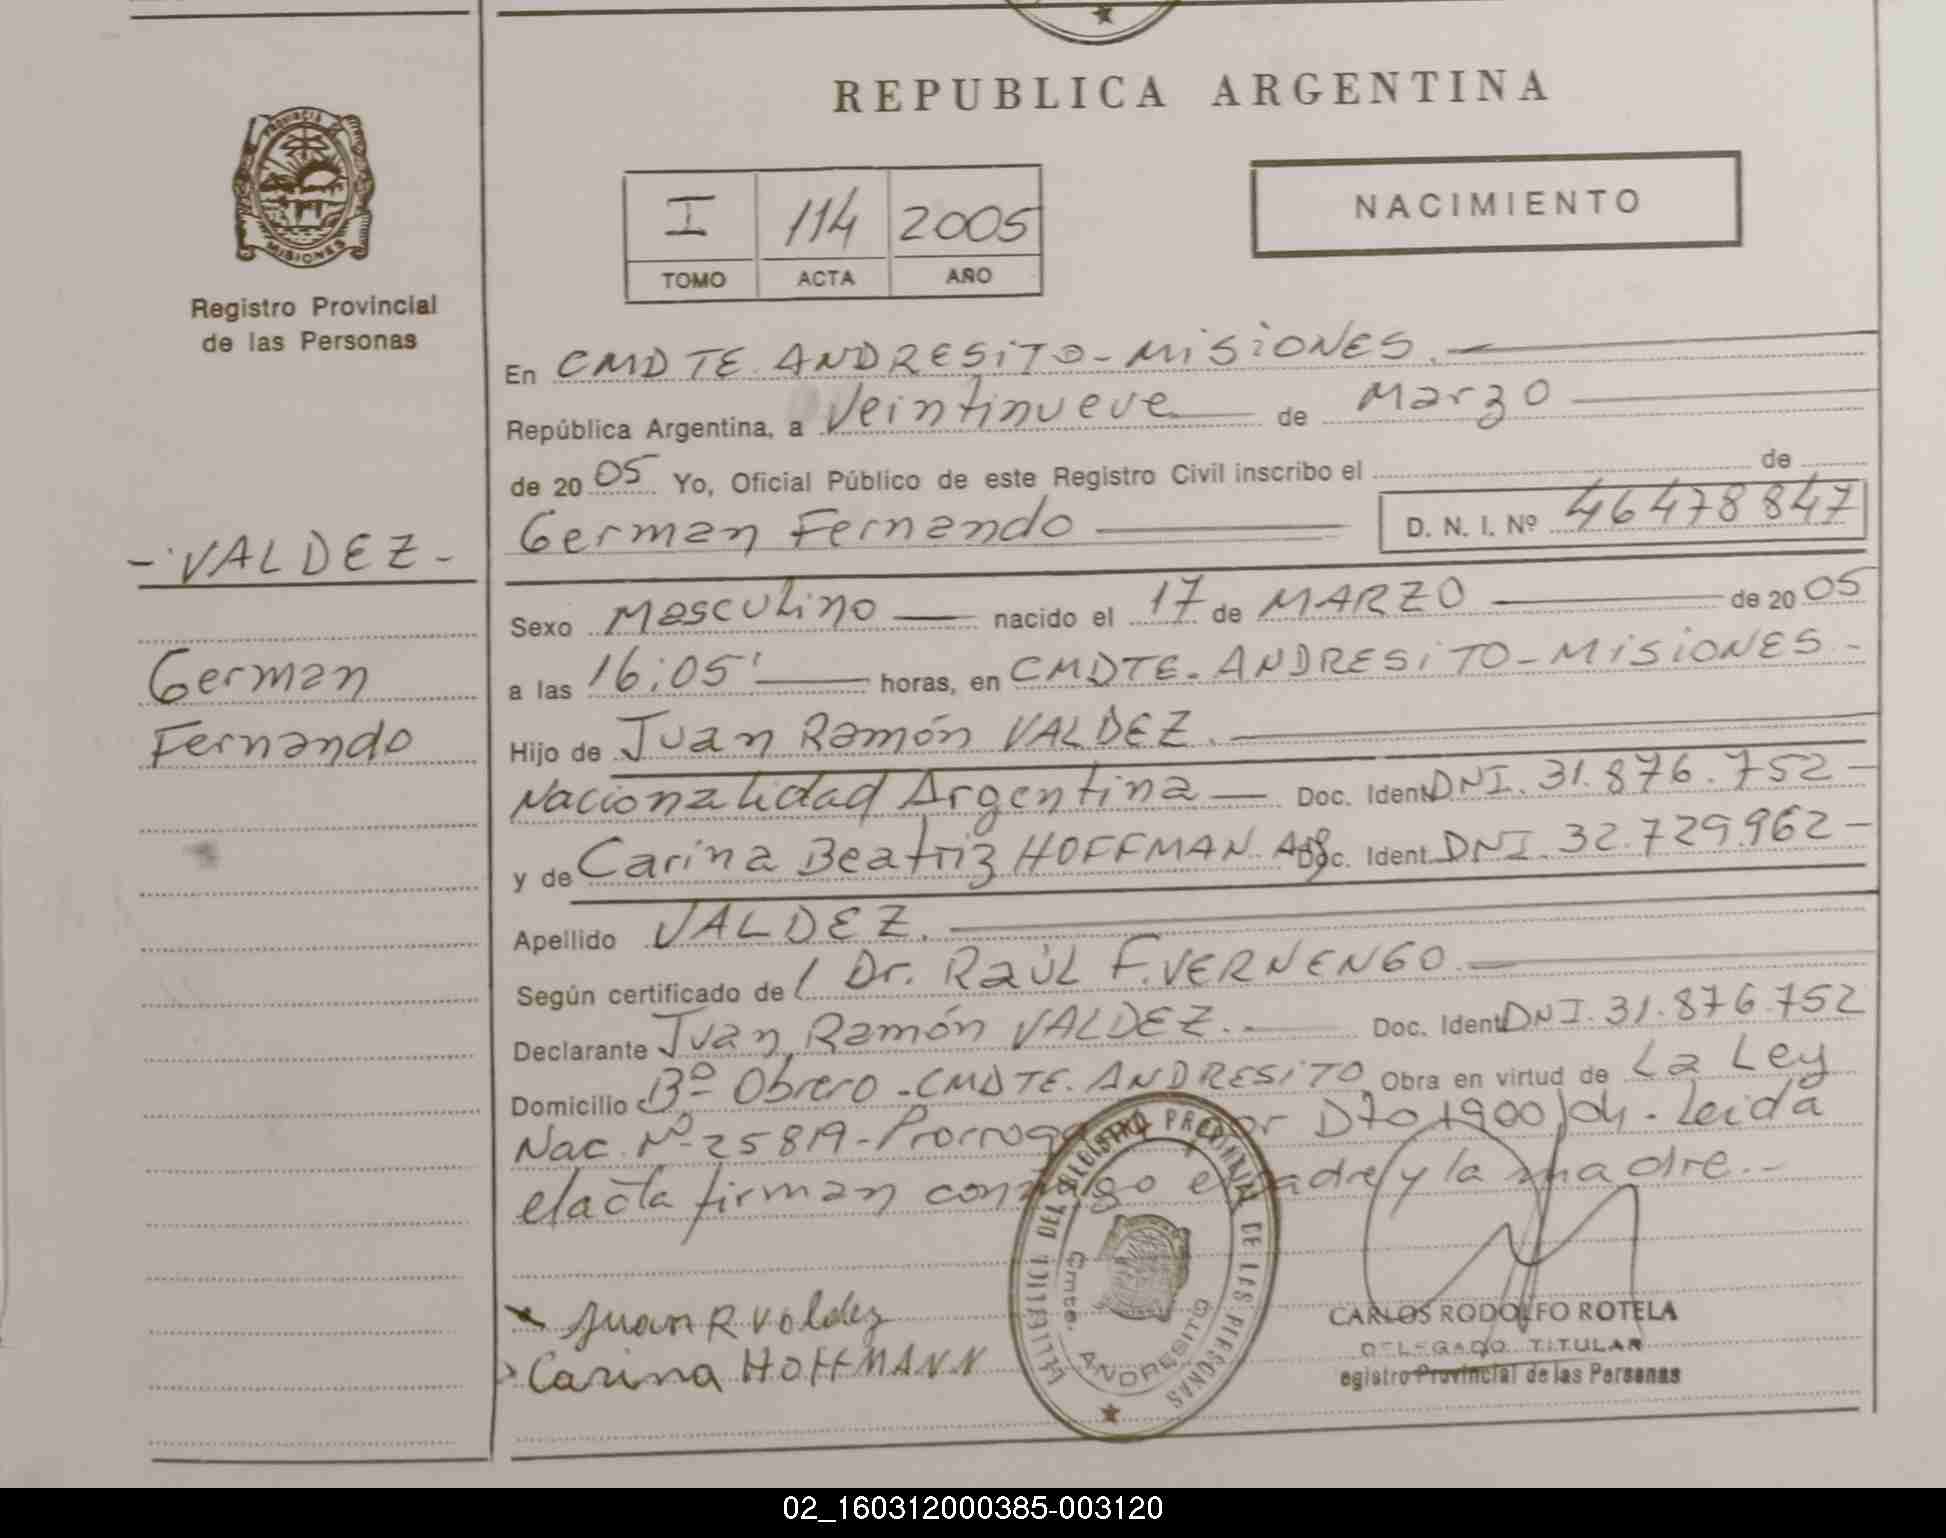 REPUBLICA ARGENTINA
PROVINCIA DE
MISIONES
Registro Provincial
de las Personas
I 114 2005
TOMO ACTA AÑO
NACIMIENTO
En CMDTE. ANDRESITO - MISIONES.
República Argentina, a Veintinueve de Marzo
de 2005 Yo, Oficial Público de este Registro Civil inscribo el de
German Fernando D. N. I. Nº 46478847
- VALDEZ -
German
Fernando
Sexo Masculino nacido el 17 de MARZO de 2005
a las 16:05' horas, en CMDTE. ANDRESITO - MISIONES -
Hijo de Juan Ramón VALDEZ.
Nacionalidad Argentina Doc. Ident DNI. 31.876.752 -
y de Carina Beatriz HOFFMAN. Arg. Doc. Ident. DNI. 32.729.962 -
Apellido VALDEZ.
Según certificado del Dr. Raúl F. VERNENGO.
Declarante Juan Ramón VALDEZ. Doc. Ident DNI. 31.876.752
Domicilio Bº Obrero - CMDTE. ANDRESITO Obra en virtud de La Ley
Nac. Nº 25819 - Dto 1900/04 - Leida
el acta firman conmigo el padre y la madre. -
Juan R Valdez
Carina HOFFMANN
REGISTRO PROVINCIAL DE LAS PERSONAS
Cmte. ANDRESITO
CARLOS RODOLFO ROTELA
DELEGADO TITULAR
egistro Provincial de las Personas
02_160312000385-003120